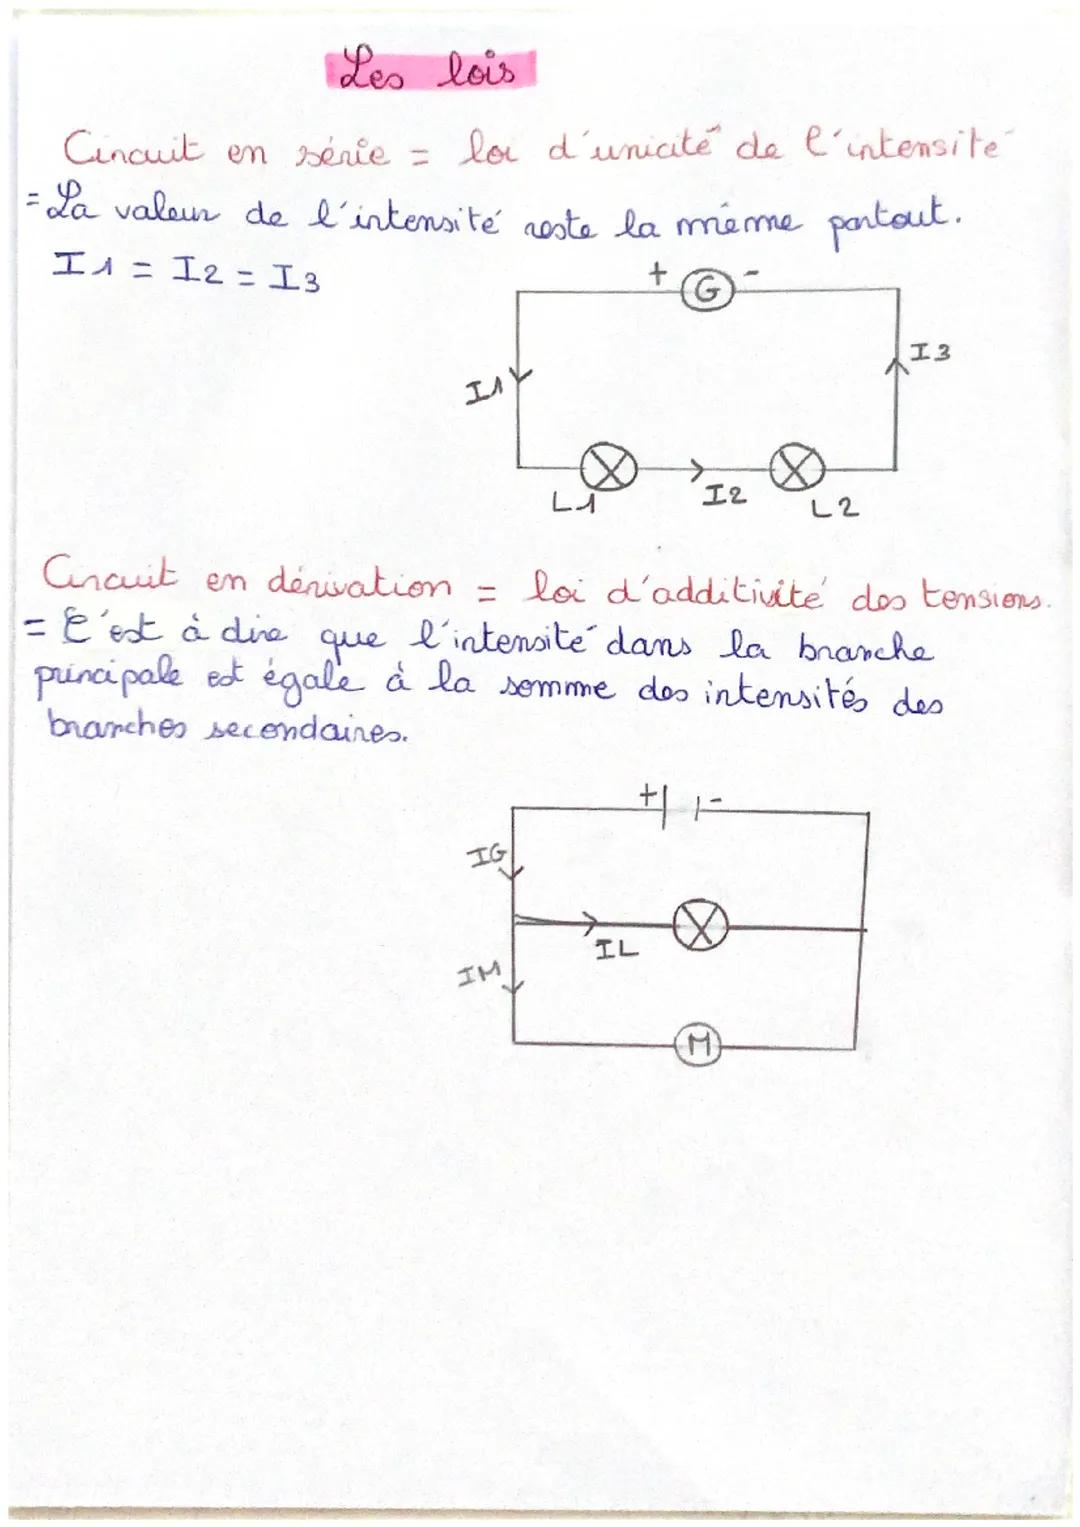 Les lois
Circuit en série = loi d'unicité de l'intensité
= La valeur de l'intensité reste la même partout.
I1 = I2 = I3
+ G -
I3
I1
I2
L1
L2
Circuit en dérivation = loi d'additivité des tensions.
= C'est à dire que l'intensité dans la branche
principale est égale à la somme des intensités des
branches secondaires.
+ -
IG
IL
IM
M